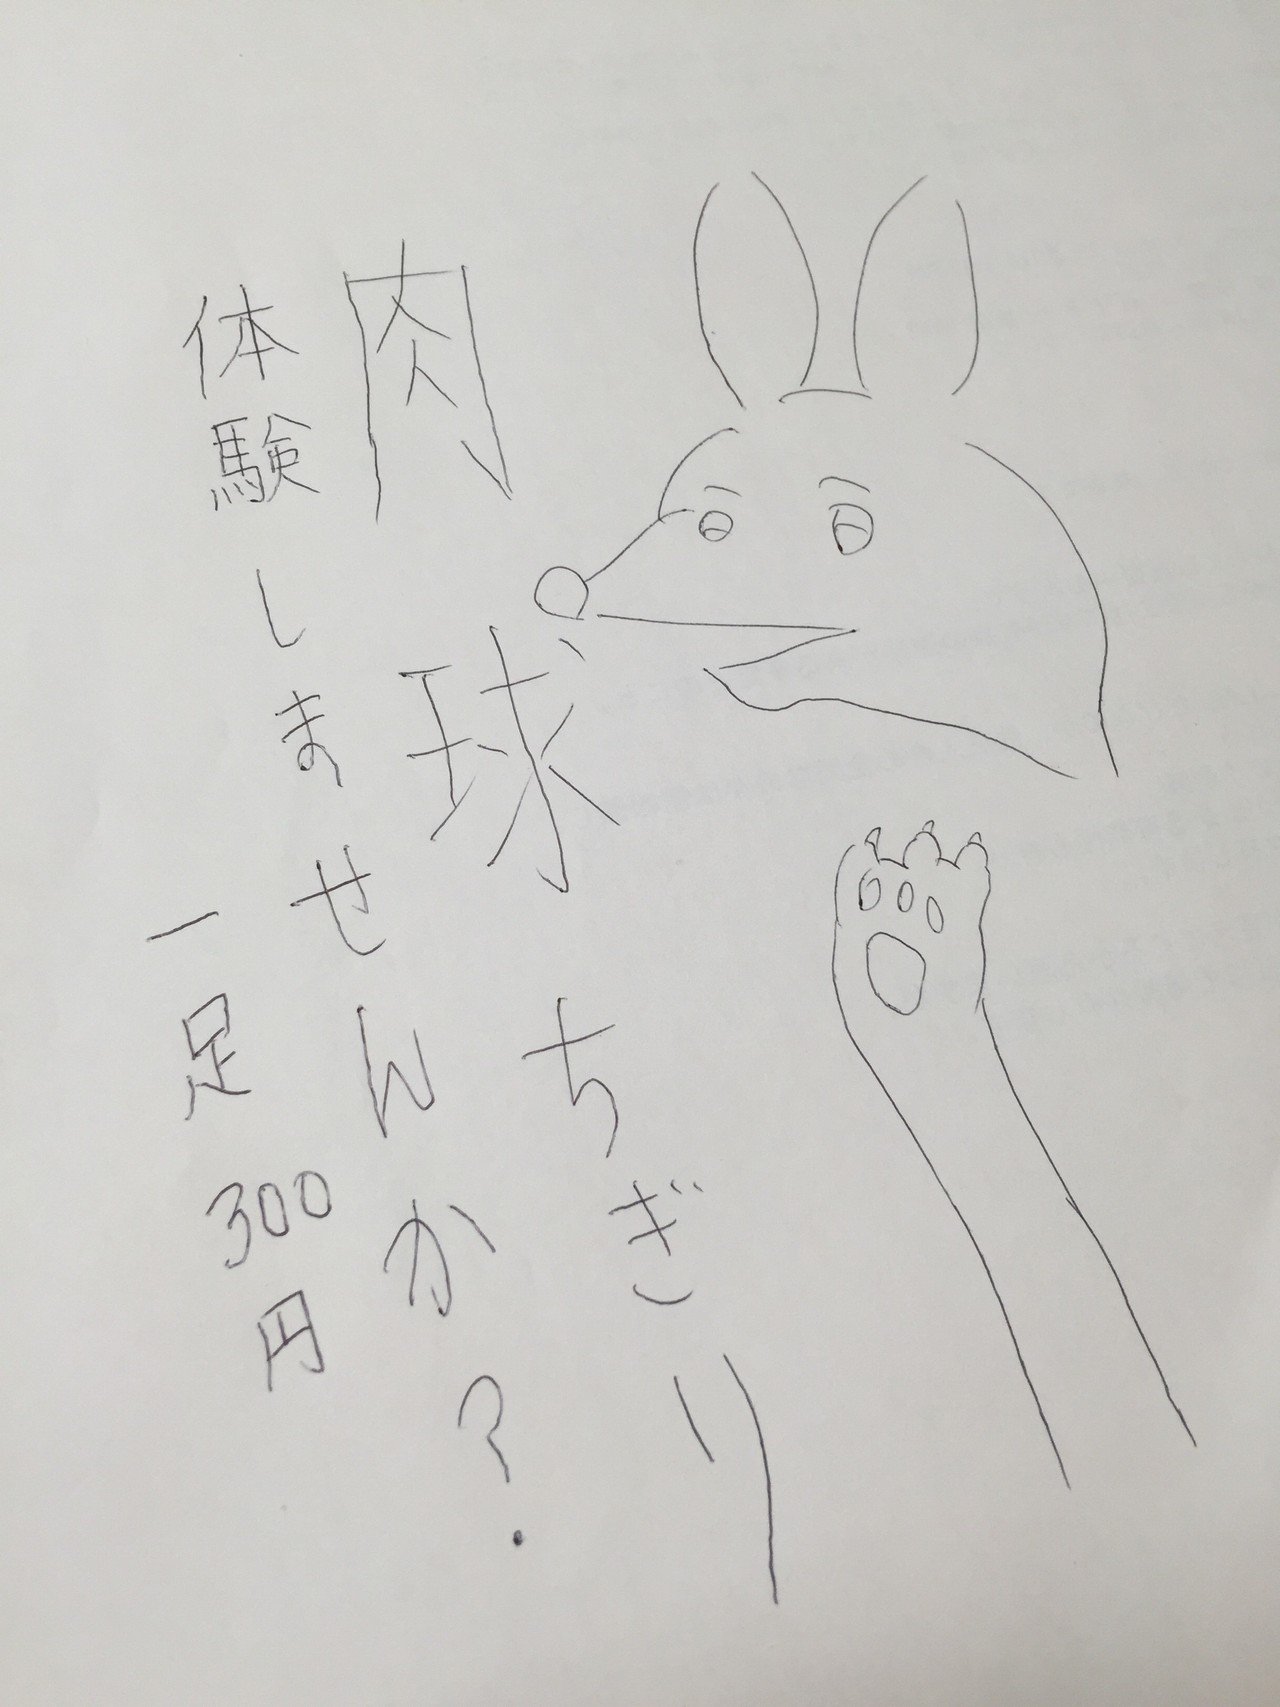 肉球ちぎり
体験しませんか?
一足300円